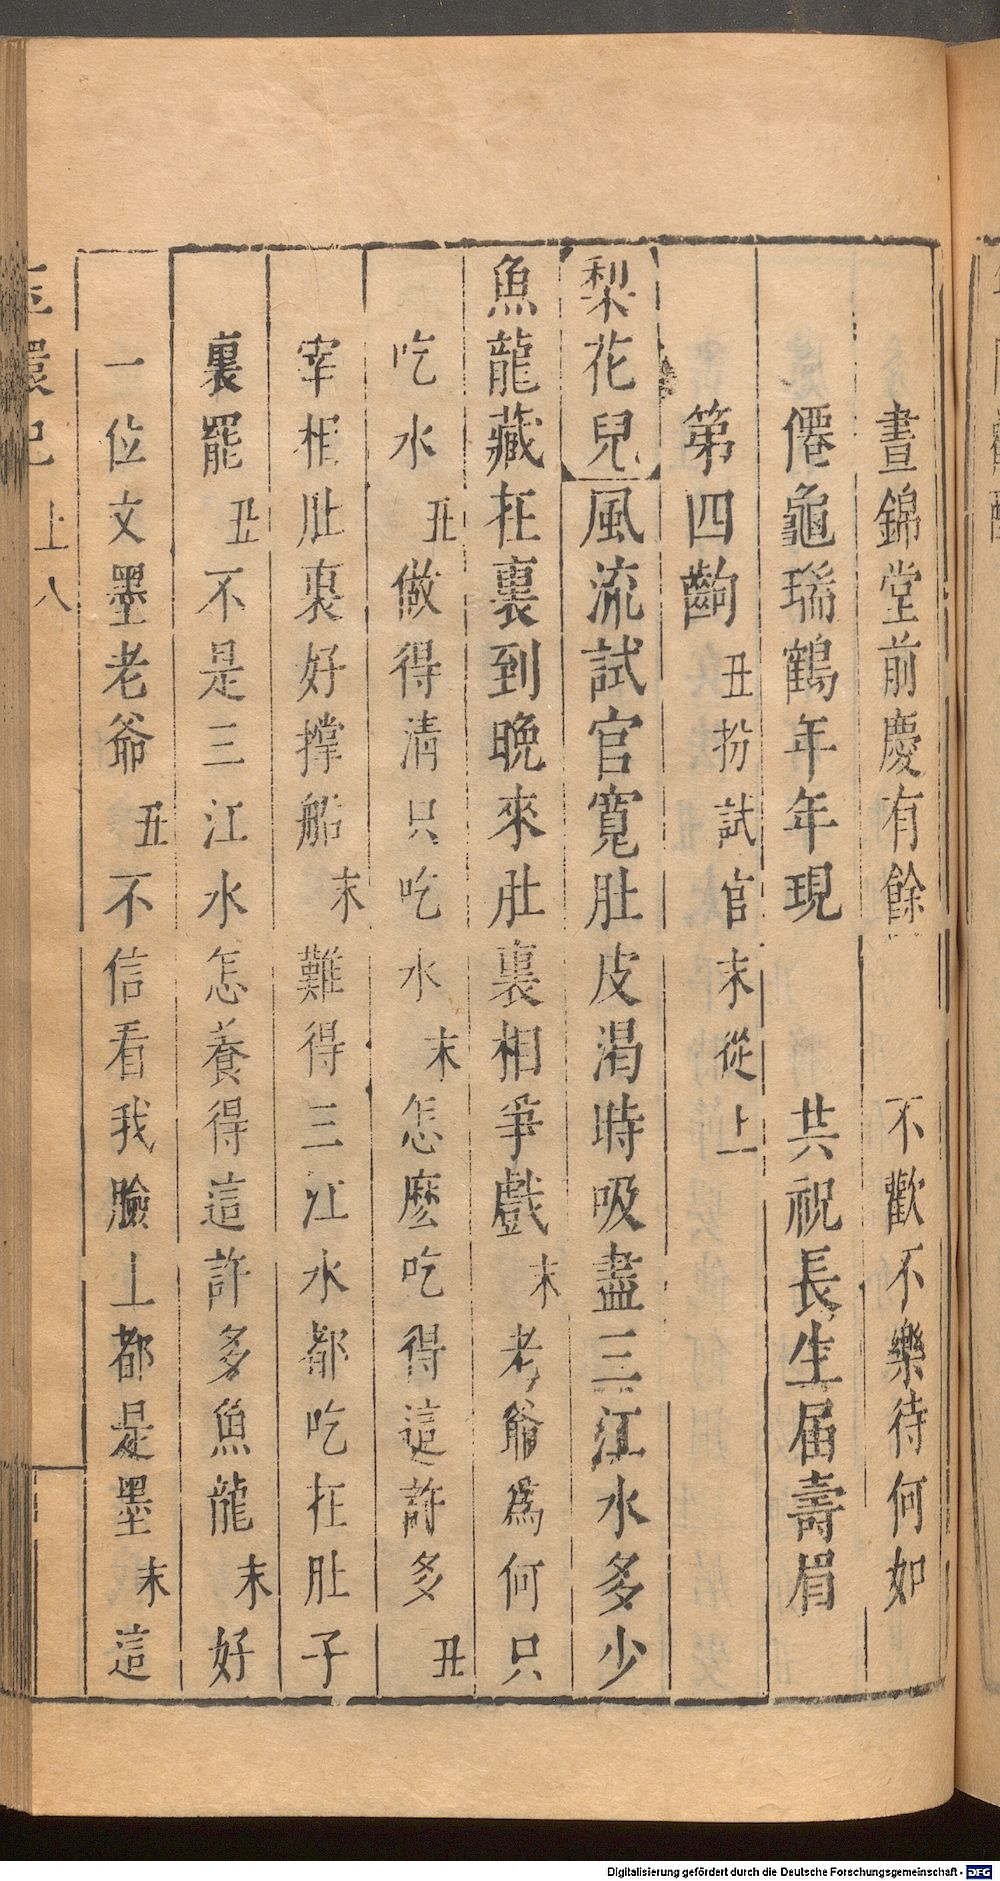 晝錦堂前慶有餘　不歡不樂待何如
僊龜瑞鶴年年現　共祝長生届壽眉
第四齣 丑扮試官末從上
梨花兒 風流試官寬肚皮渴時吸盡三江水多少
魚龍藏在裏到晚來肚裏相爭戲 末 老爺爲何只
吃水 丑 做得清只吃水 末 怎麽吃得這許多 丑
宰相肚裏好撑船 末 難得三江水都吃在肚子
裏罷 丑 不是三江水怎養得這許多魚龍 末 好
一位文墨老爺 丑 不信看我臉上都是墨 末 這
玉環記 上 八
Digitalisierung gefördert durch die Deutsche Forschungsgemeinschaft - DFG